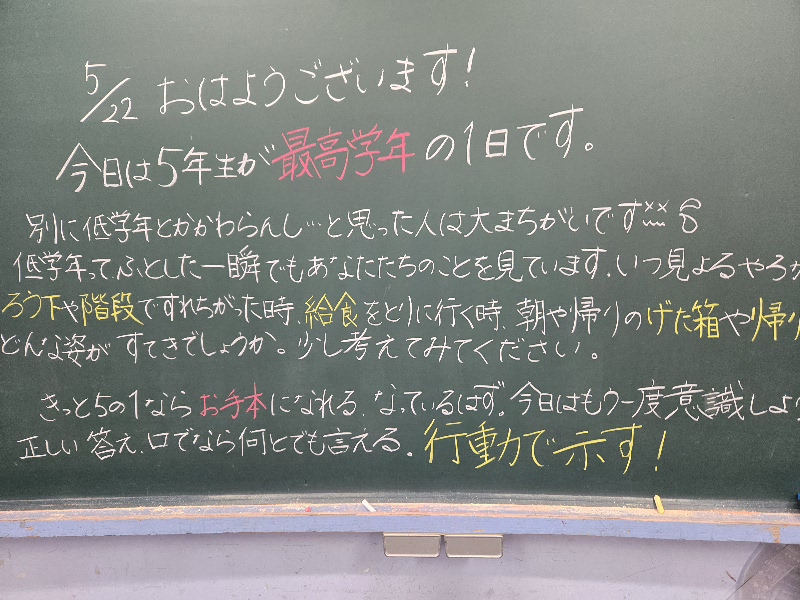 5/22 おはようございます!
今日は5年生が最高学年の1日です。
別に低学年とかかわらんし…と思った人は大まちがいです
低学年ってふとした一瞬でもあなたたちのことを見ています。いつ見よるやろか
ろう下や階段ですれちがった時、給食をとりに行く時、朝や帰りのげた箱や帰り
どんな姿がすてきでしょうか。少し考えてみてください。
きっと5の1ならお手本になれる、なっているはず。今日はもう一度意識しよう
正しい答え、口でなら何とでも言える。行動で示す!